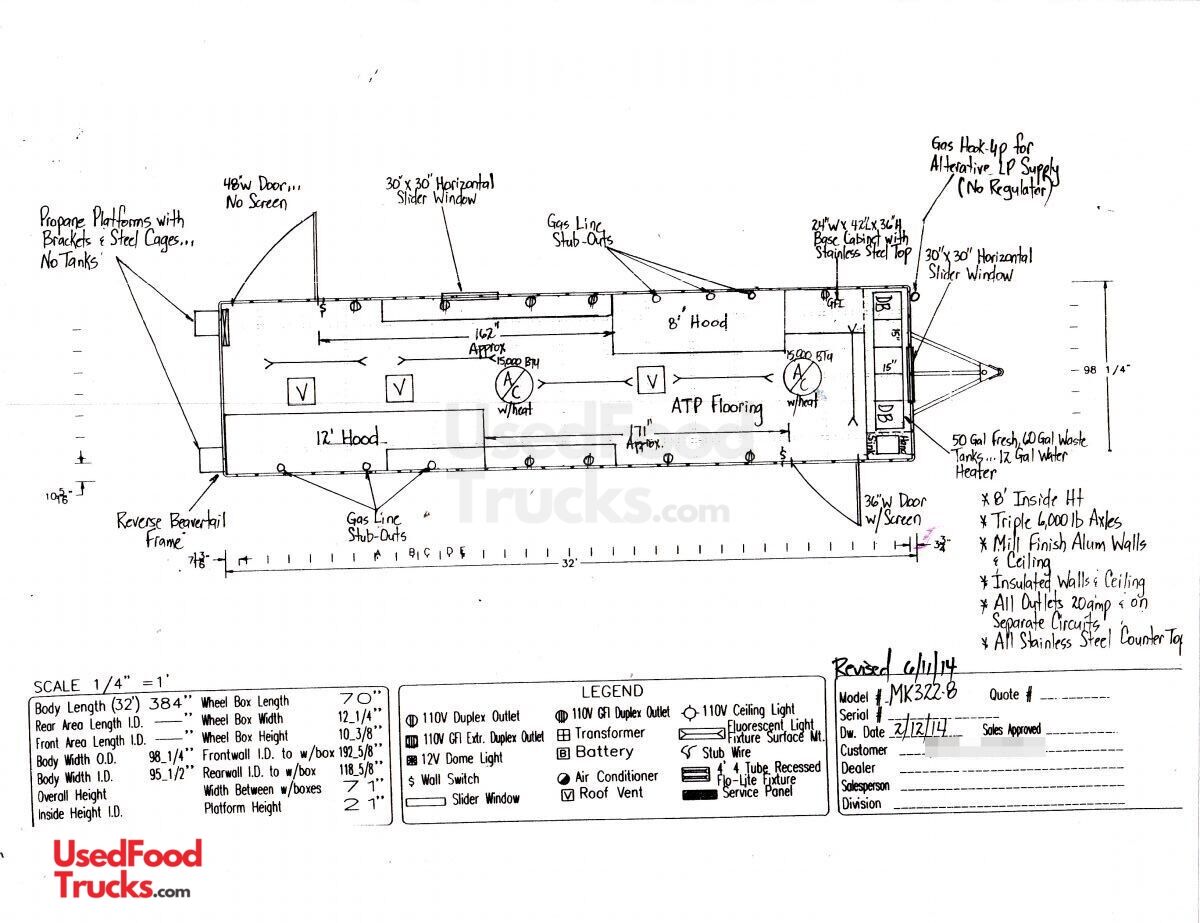 Gas Hook-Up for
Alterative LP Supply
(No Regulator)
48"W Door...
No Screen
30"x 30" Horizontal
Slider Window
Propane Platforms with
Brackets & Steel Cages...
No Tanks
Gas Line
Stub-Outs
24"W x 42"L x 36"H
Base Cabinet with
Stainless Steel Top
30"x 30" Horizontal
Slider Window
$
GFI
DB
8' Hood
162"
Approx
15"
15,000 BTU
A/C
w/heat
15,000 BTU
A/C
w/heat
15"
98 1/4"
V
V
V
ATP Flooring
DB
12' Hood
71"
Approx.
$
Hand
Sink
50 Gal Fresh, 60 Gal Waste
Tanks... 12 Gal Water
Heater
10 5/16"
36"W Door
w/Screen
Reverse Beavertail
Frame
Gas Line
Stub-Outs
A B C D E
32'
UsedFood
Trucks.com
* 8' Inside Ht
* Triple 6,000 lb Axles
* Mill Finish Alum Walls
& Ceiling
* Insulated Walls & Ceiling
* All Outlets 20amp & on
Separate Circuits
* All Stainless Steel Counter Top
SCALE 1/4" =1'
Body Length (32') 384"
Rear Area Length I.D. —"
Front Area Length I.D. —"
Body Width O.D. 98_1/4"
Body Width I.D. 95_1/2"
Overall Height
Inside Height I.D.
Wheel Box Length 70"
Wheel Box Width 12_1/4"
Wheel Box Height 10_3/8"
Frontwall I.D. to w/box 192_5/8"
Rearwall I.D. to w/box 118_5/8"
Width Between w/boxes 71"
Platform Height 21"
LEGEND
110V Duplex Outlet
110V GFI Extr. Duplex Outlet
12V Dome Light
$ Wall Switch
Slider Window
110V GFI Duplex Outlet
Transformer
B Battery
Air Conditioner
V Roof Vent
110V Ceiling Light
Fluorescent Light
Fixture Surface Mt.
Stub Wire
4' 4 Tube Recessed
Flo-Lite Fixture
Service Panel
Revised 6/11/14
Model # MK322-8 Quote #
Serial #
Dw. Date 2/12/14 Sales Approved
Customer
Dealer
Salesperson
Division
UsedFood
Trucks.com